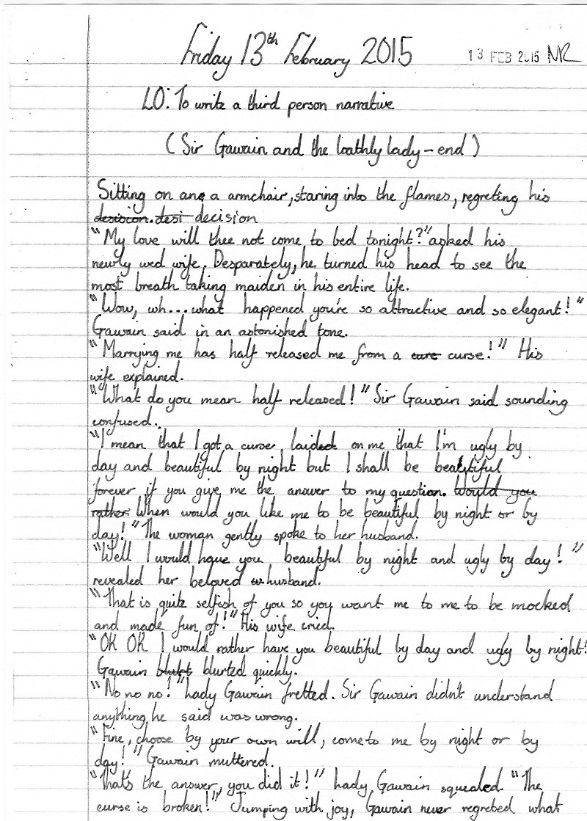 Friday 13th February 2015
13 FEB 2015 NR
LO: To write a third person narrative
(Sir Gawain and the loathly lady - end)
Sitting on ana a armchair, staring into the flames, regreting his
desision. desi decision
"My love will thee not come to bed tonight?" asked his
newly wed wife. Desparately, he turned his head to see the
most breath taking maiden in his entire life.
"Wow, wh...what happened you're so attractive and so elegant!"
Gawain said in an astonished tone.
"Marrying me has half released me from a curs curse!" His
wife explained.
"What do you mean half released!" Sir Gawain said sounding
confused.
"I mean that I got a curse laided on me that I'm ugly by
day and beautiful by night but I shall be beautiful
forever if you give me the answer to my question. Would you
rather When would you like me to be beautiful by night or by
day!" The woman gently spoke to her husband.
"Well I would have you beautiful by night and ugly by day!"
revealed her beloved husband.
"That is quite selfish of you so you want me to me to be mocked
and made fun of!" His wife cried.
"OK OK I would rather have you beautiful by day and ugly by night!
Gawain blurted quickly.
"No no no!" Lady Gawain fretted. Sir Gawain didn't understand
anything he said was wrong.
"Fine, choose by your own will, come to me by night or by
day!" Gawain muttered.
"That's the answer, you did it!" Lady Gawain squealed "The
curse is broken!" Jumping with joy, Gawain never regretted what